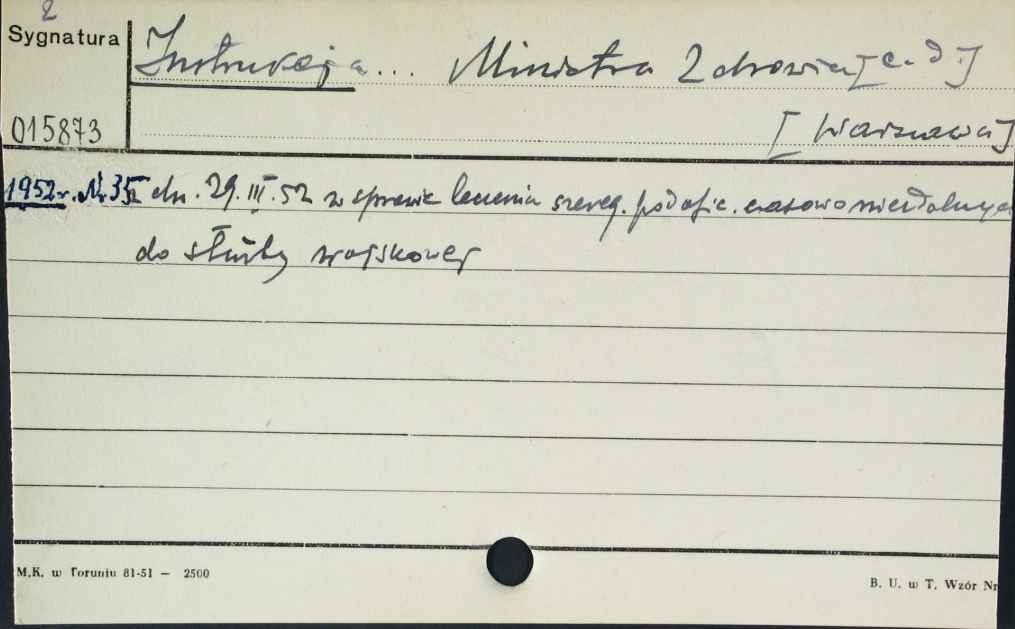 2
Sygnatura
Instrukcja... Ministra Zdrowia [c. d.]
015873
[Warszawa]
1952 r. Nr 35 dn. 29. III. 52 w sprawie leczenia szereg. podofic. czasowo niezdolnych
do służby wojskowej
M.K. w Toruniu 81-51 — 2500
B. U. w T. Wzór Nr